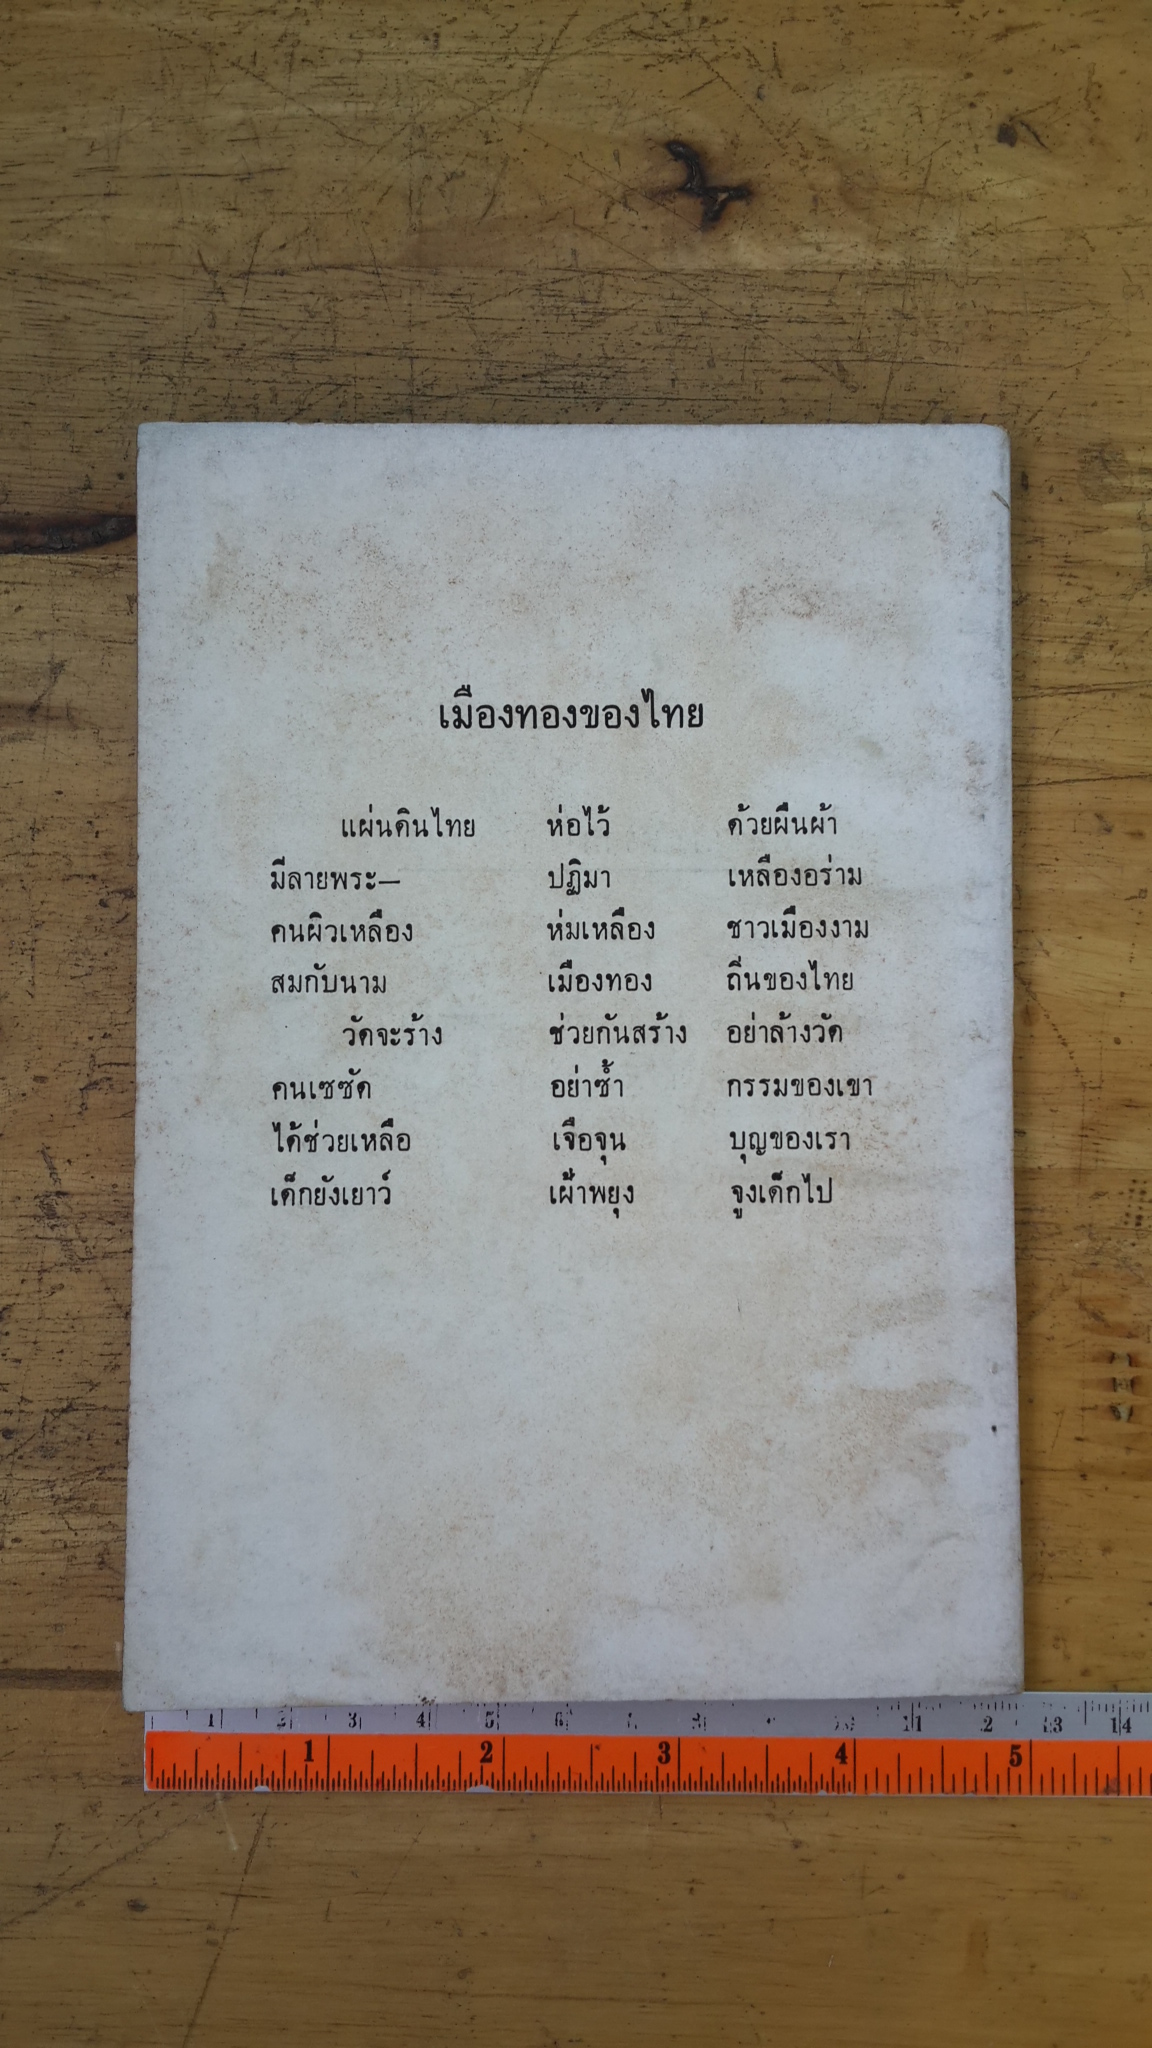 เมืองทองของไทย
แผ่นดินไทย ห่อไว้ ด้วยผืนผ้า
มีลายพระ— ปฏิมา เหลืองอร่าม
คนผิวเหลือง ห่มเหลือง ชาวเมืองงาม
สมกับนาม เมืองทอง ถิ่นของไทย
วัดจะร้าง ช่วยกันสร้าง อย่าล้างวัด
คนเซซัด อย่าซ้ำ กรรมของเขา
ได้ช่วยเหลือ เจือจุน บุญของเรา
เด็กยังเยาว์ เฝ้าพยุง จูงเด็กไป
1 2 3 4 5 6 11 2 13 14
1 2 3 4 5